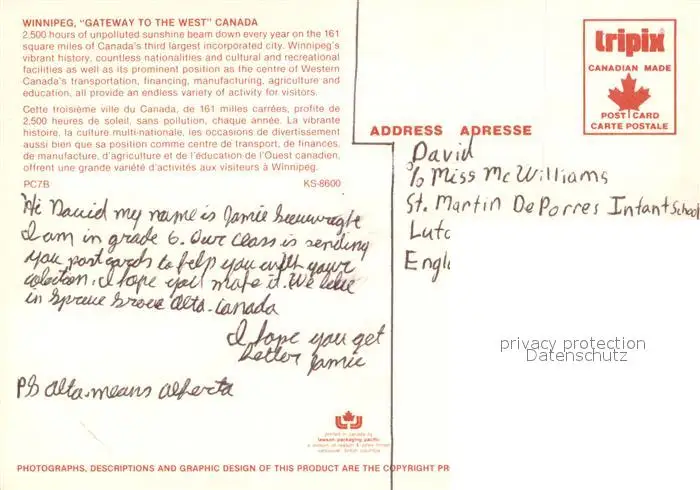 WINNIPEG, "GATEWAY TO THE WEST" CANADA
2,500 hours of unpolluted sunshine beam down every year on the 161
square miles of Canada's third largest incorporated city. Winnipeg's
vibrant history, countless nationalities and cultural and recreational
facilities as well as its prominent position as the centre of Western
Canada's transportation, financing, manufacturing, agriculture and
education, all provide an endless variety of activity for visitors.
Cette troisième ville du Canada, de 161 milles carrées, profite de
2,500 heures de soleil, sans pollution, chaque année. La vibrante
histoire, la culture multi-nationale, les occasions de divertissement
aussi bien que sa position comme centre de transport, de finances,
de manufacture, d'agriculture et de l'éducation de l'Ouest canadien,
offrent une grande variété d'activités aux visiteurs à Winnipeg.
PC7B KS-8600
Hi David my name is Jamie
I am in grade 6. Our class is sending
you postcards to help you with your
colection. I hope you make it. We live
in Spruce Grove Alta. Canada
I hope you get
better Jamie
PS alta. means alberta
tripix
CANADIAN MADE
POST CARD
CARTE POSTALE
ADDRESS ADRESSE
David
c/o Miss McWilliams
St. Martin DePorres Infant School
Luto
Engl
privacy protection
Datenschutz
printed in canada by
lawson packaging pacific
a division of lawson & jones limited
vancouver, british columbia
PHOTOGRAPHS, DESCRIPTIONS AND GRAPHIC DESIGN OF THIS PRODUCT ARE THE COPYRIGHT PR